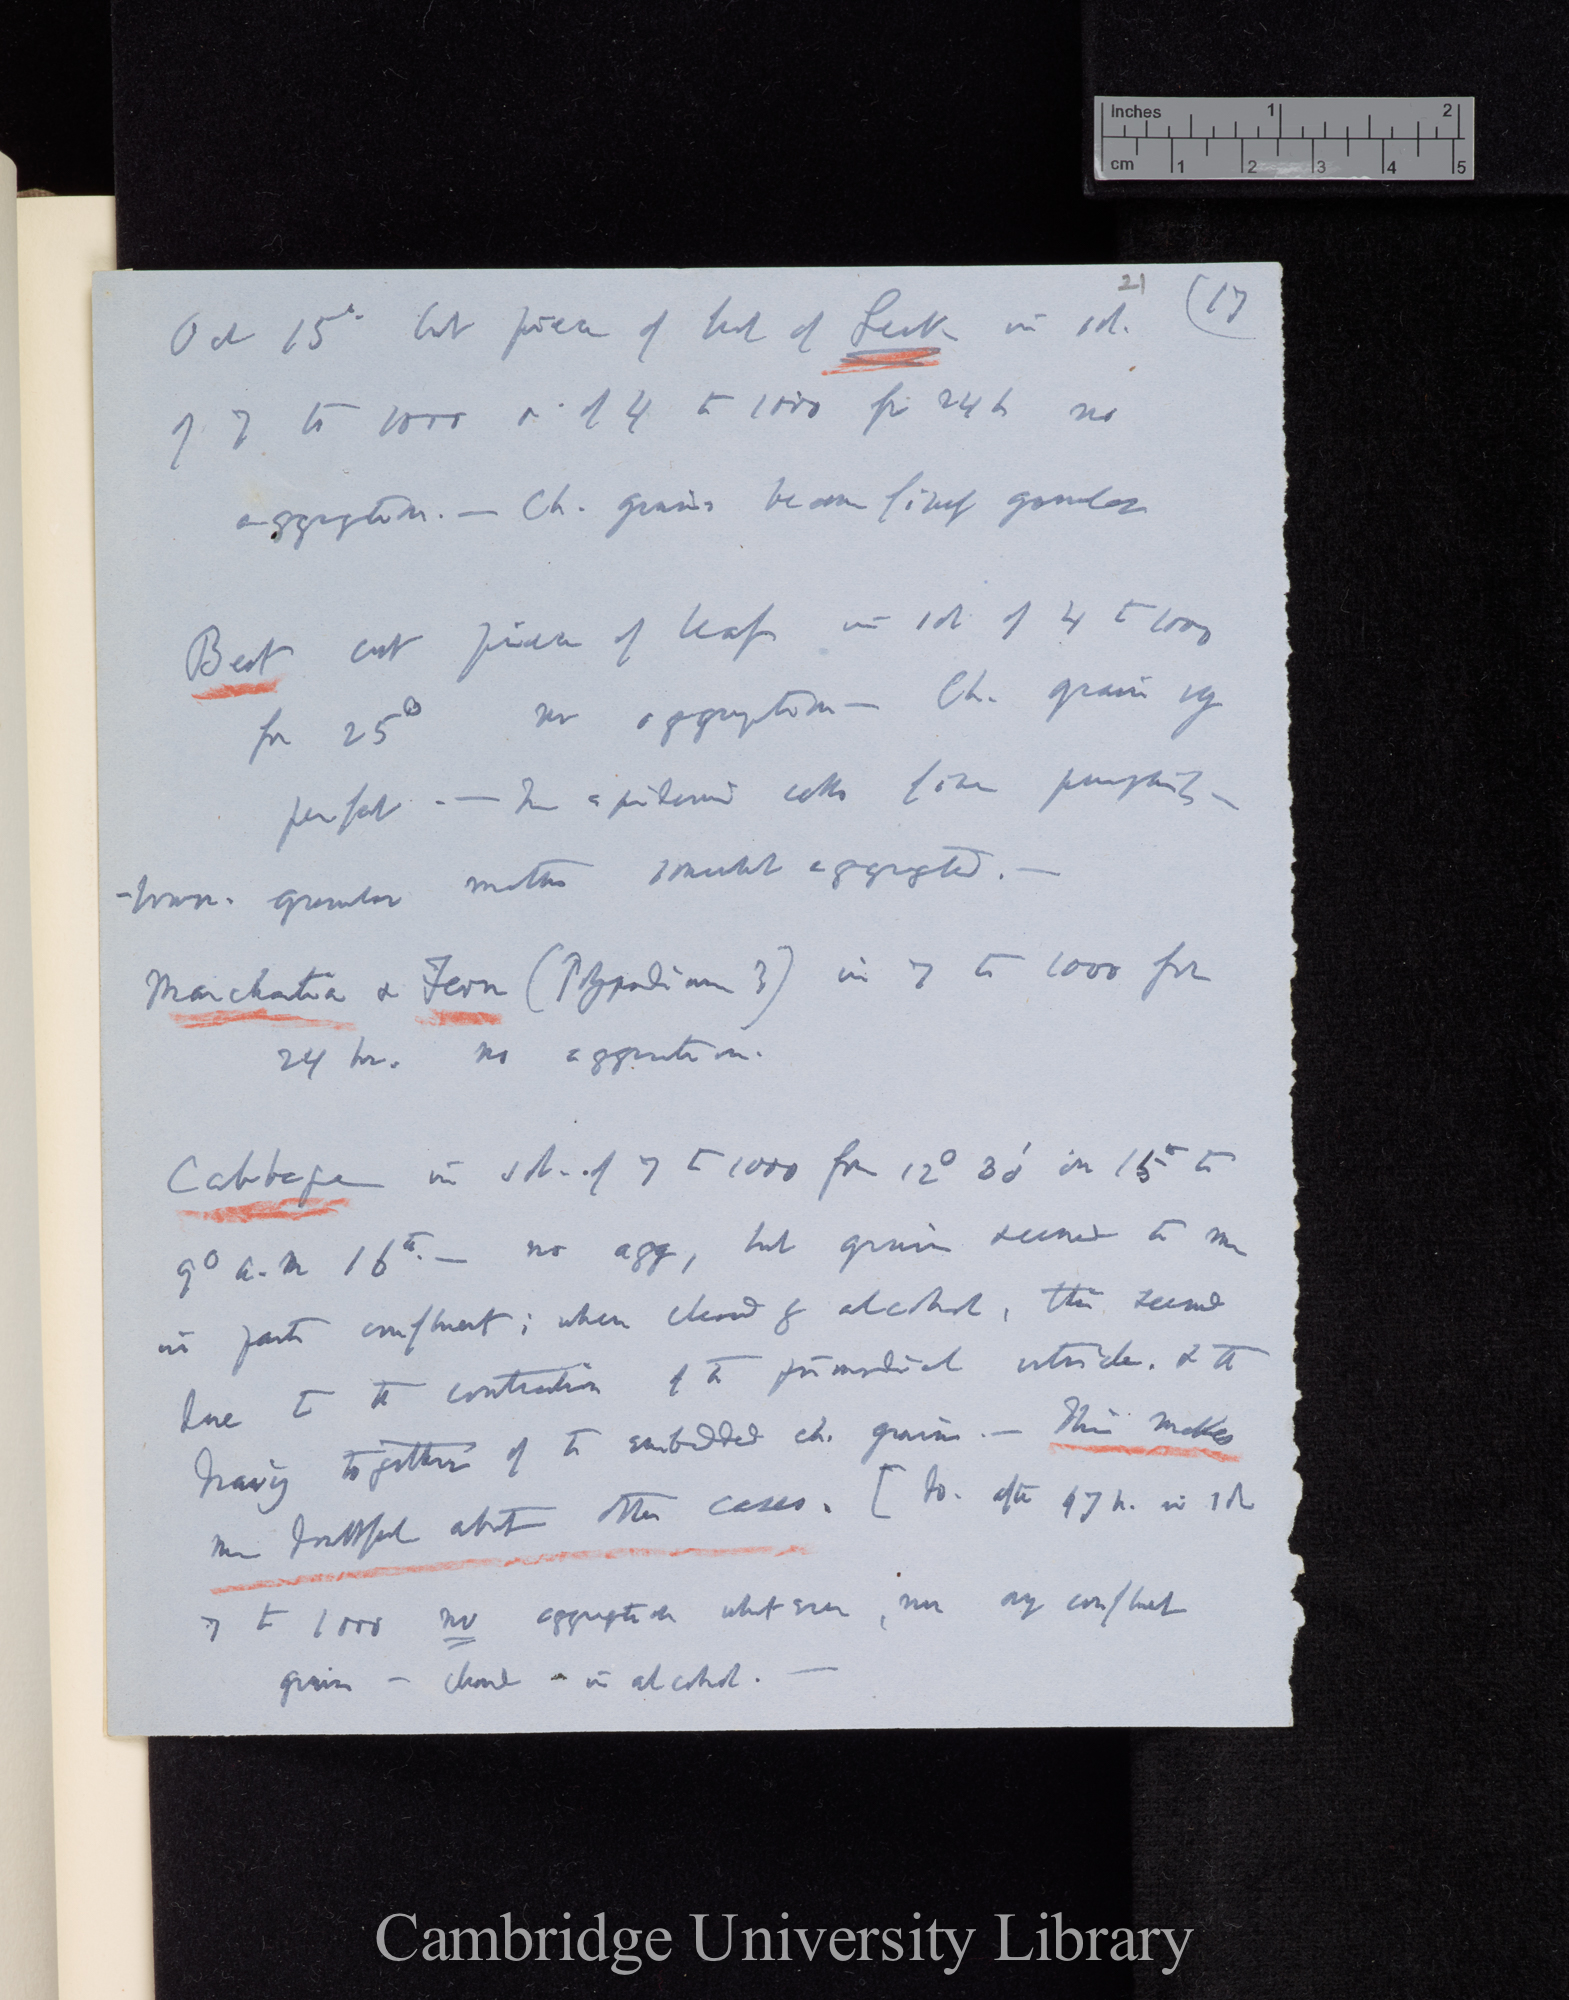 inches 1 2
cm 1 2 3 4 5
21
(17
Oct 15th cut pieces of leaf of Leek in sol.
of 7 to 1000 & of 4 to 1000 for 24 h no
aggregation. — Ch. grains become finely granular
Beet cut pieces of leaf in sol of 4 to 1000
for 25° no aggregation — Ch. grains
perfect. — In epidermis cells fine
granular matter somewhat aggregated. —
Marchantia & Fern (Polypodium ?) in 7 to 1000 for
24 hr. no aggregation.
Cabbage in sol. of 7 to 1000 for 12° 30' on 15th to
9° a.m 16th. — no agg, but grains seemed to me
in parts confluent; when cleared by alcohol, this seemed
due to the contraction of the primordial utricle. & the
drawing together of the embedded ch. grains. — This makes
me doubtful about other cases. [ do. after 47 h. in sol
7 to 1000 no aggregation whatever, nor any confluent
grains — cleared in alcohol. —
Cambridge University Library